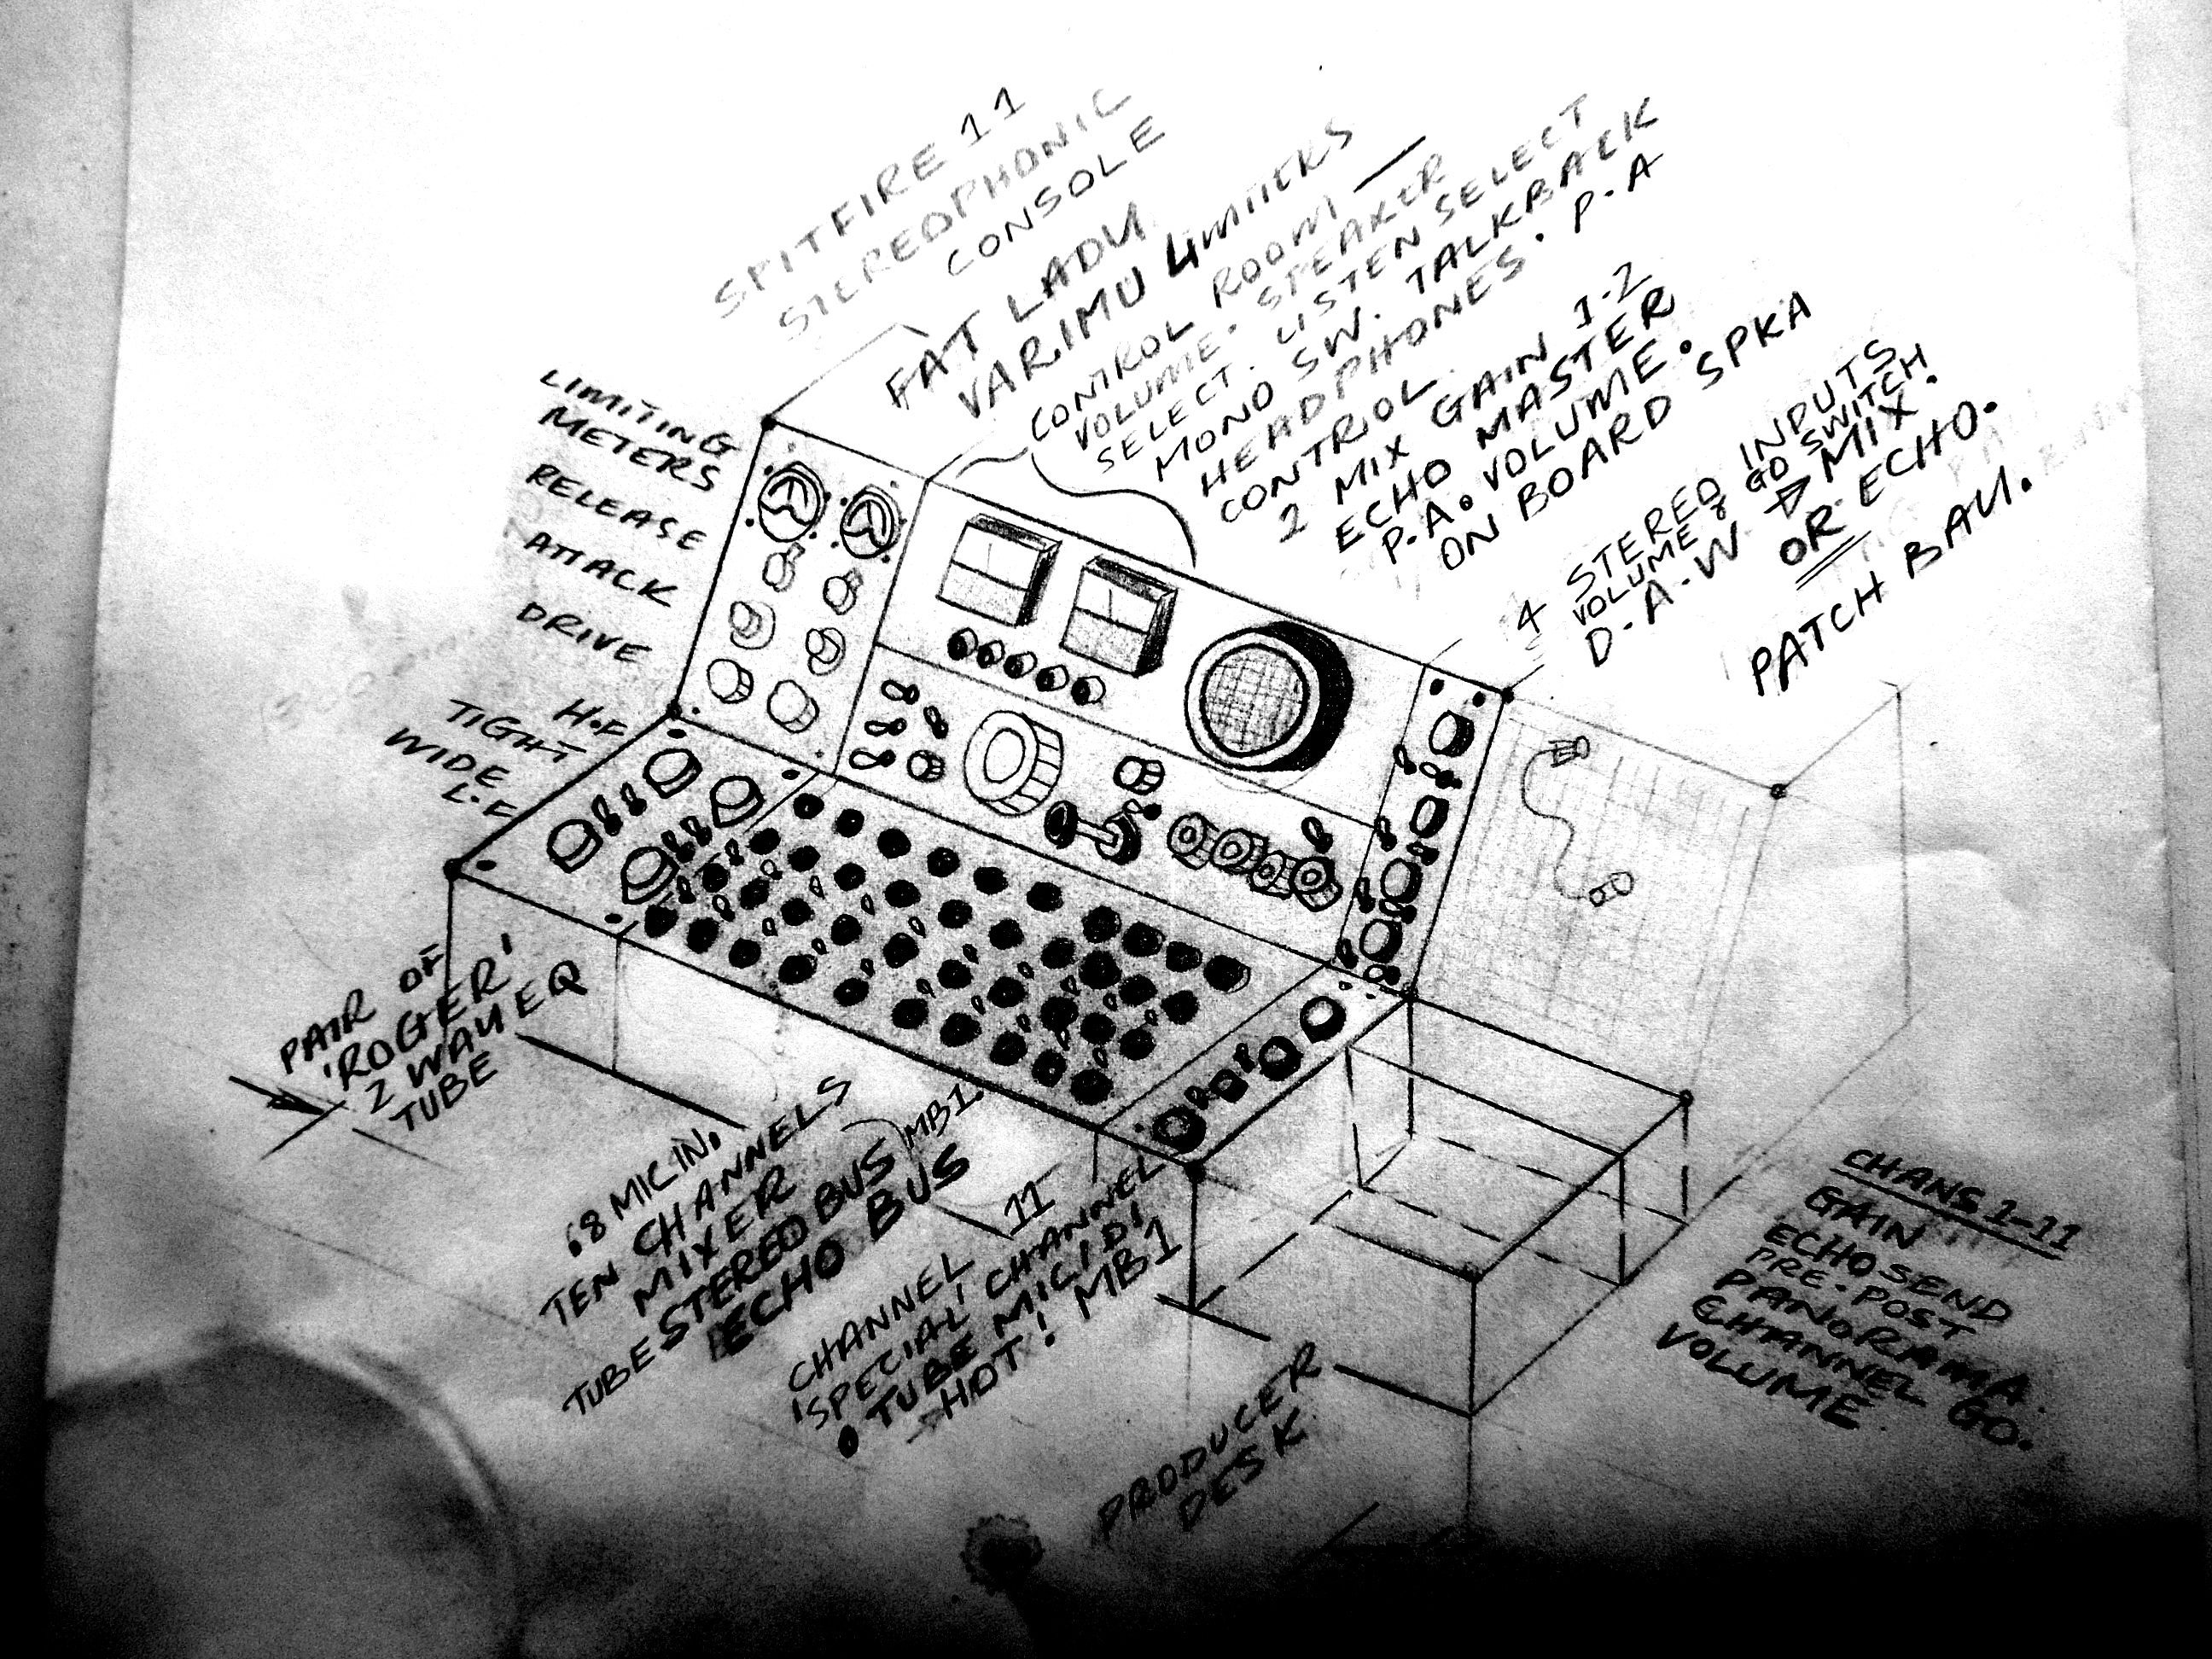 SPITFIRE 11
STEREOPHONIC
CONSOLE
FAT LADY
VARIMU LIMITERS
CONTROL ROOM —
VOLUME. SPEAKER
SELECT. LISTEN SELECT
MONO SW. TALKBACK
HEADPHONES. P.A
CONTROL.
2 MIX GAIN 1-2
ECHO MASTER
P.A. VOLUME.
ON BOARD SPKA
4 STEREO INPUTS
VOLUME & GO SWITCH
D-A-W → MIX.
OR ECHO.
PATCH BAY.
LIMITING
METERS
RELEASE
ATTACK
DRIVE
H.F
TIGHT
WIDE
L.F
PAIR OF
'ROGER'
2 WAY EQ
TUBE
.8 MIC IN.
TEN CHANNELS
MIXER
TUBE STEREO BUS MB1
ECHO BUS
CHANNEL 11
'SPECIAL' CHANNEL
TUBE MIC/DI
HOT! MB1
PRODUCER
DESK
CHANS 1-11
GAIN
ECHO SEND
PRE-POST
PANORAMA.
CHANNEL GO.
VOLUME